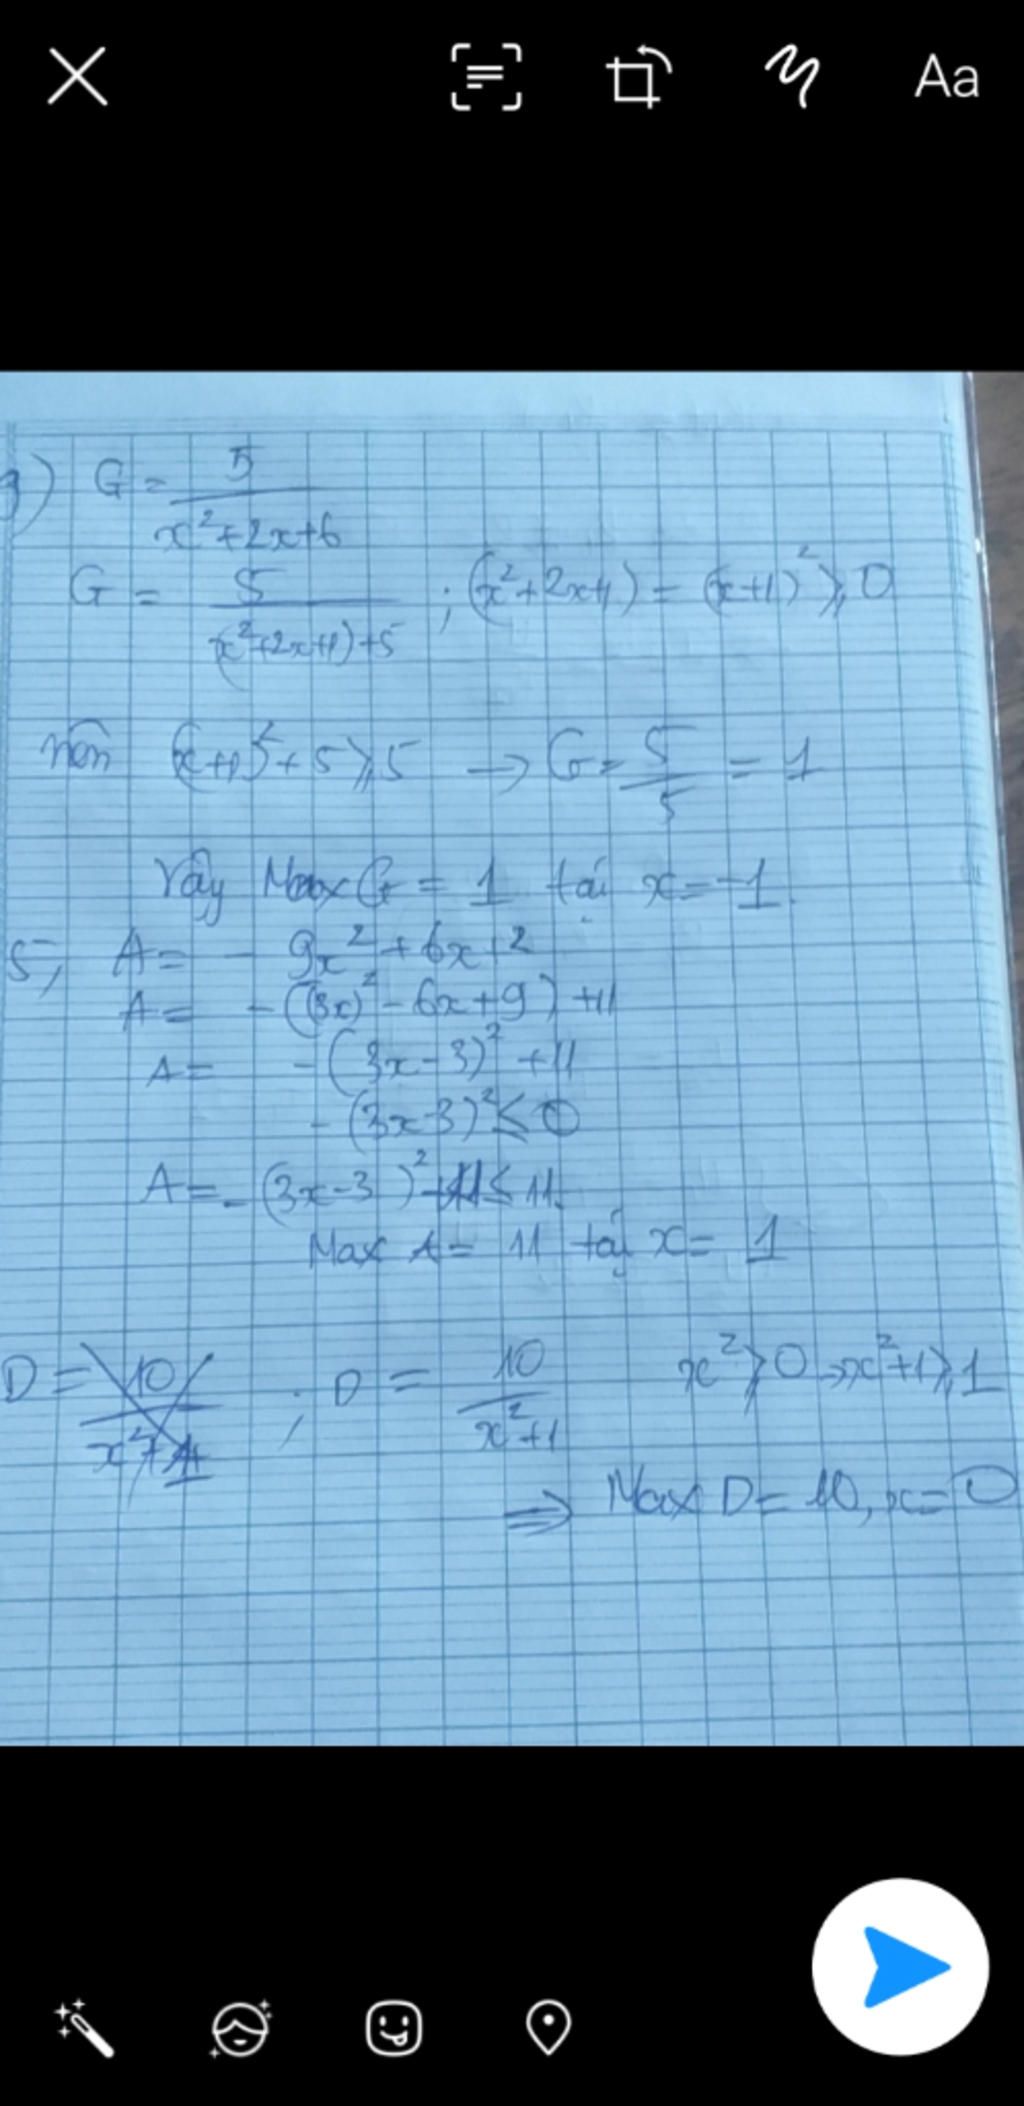 Aa
g) G = 5/(x²+2x+6)
G = 5/((x²+2x+1)+5) ; (x²+2x+1) = (x+1)² ≥ 0
nên (x+1)²+5 ≥ 5 → G = 5/5 = 1
Vậy Max G = 1 tại x = -1.
5, A = - 9x² + 6x + 2
A = - ((3x)² - 6x + 9) + 11
A = - (3x-3)² + 11
- (3x-3)² ≤ 0
A = - (3x-3)² + 11 ≤ 11.
Max A = 11 tại x = 1
D = 10/(x²+1 ; D = 10/(x²+1) x² ≥ 0 → x²+1 ≥ 1
⇒ Max D = 10, x = 0